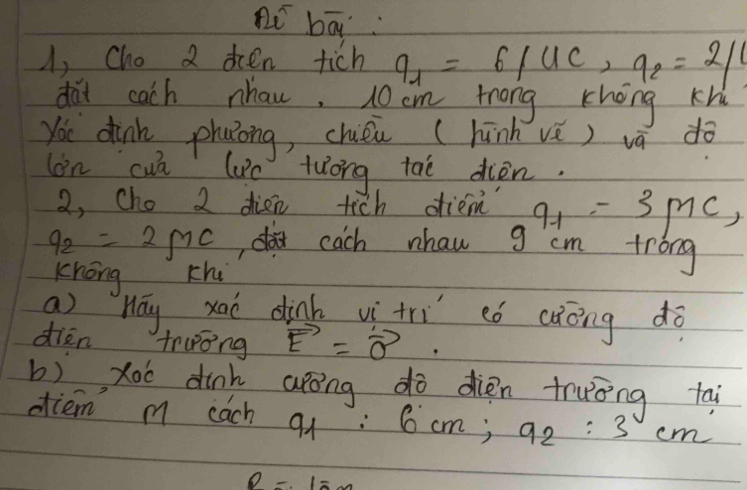 Đề bài :
1, Cho 2 điện tích q1 = 6 μC, q2 = 2 μ
đặt cách nhau. 10 cm trong không khí
Xác định phương, chiều (hình vẽ) và độ
lớn của lực tương tác điện.
2, Cho 2 điện tích điểm q1 = 3 μC,
q2 = 2 μC, đặt cách nhau 9 cm trong
không khí
a) Hãy xác định vị trí có cường độ
điện trường E⃗ = 0⃗.
b) Xác định cường độ điện trường tại
điểm M cách q1 : 6 cm; q2 : 3 cm